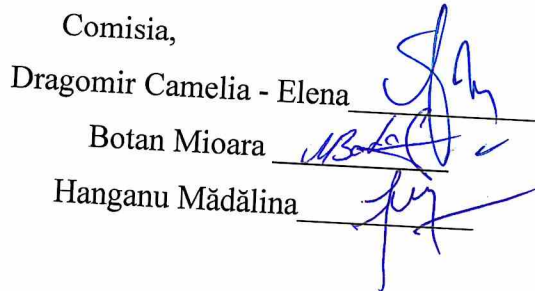 Comisia,
Dragomir Camelia - Elena
Botan Mioara
Hanganu Mădălina